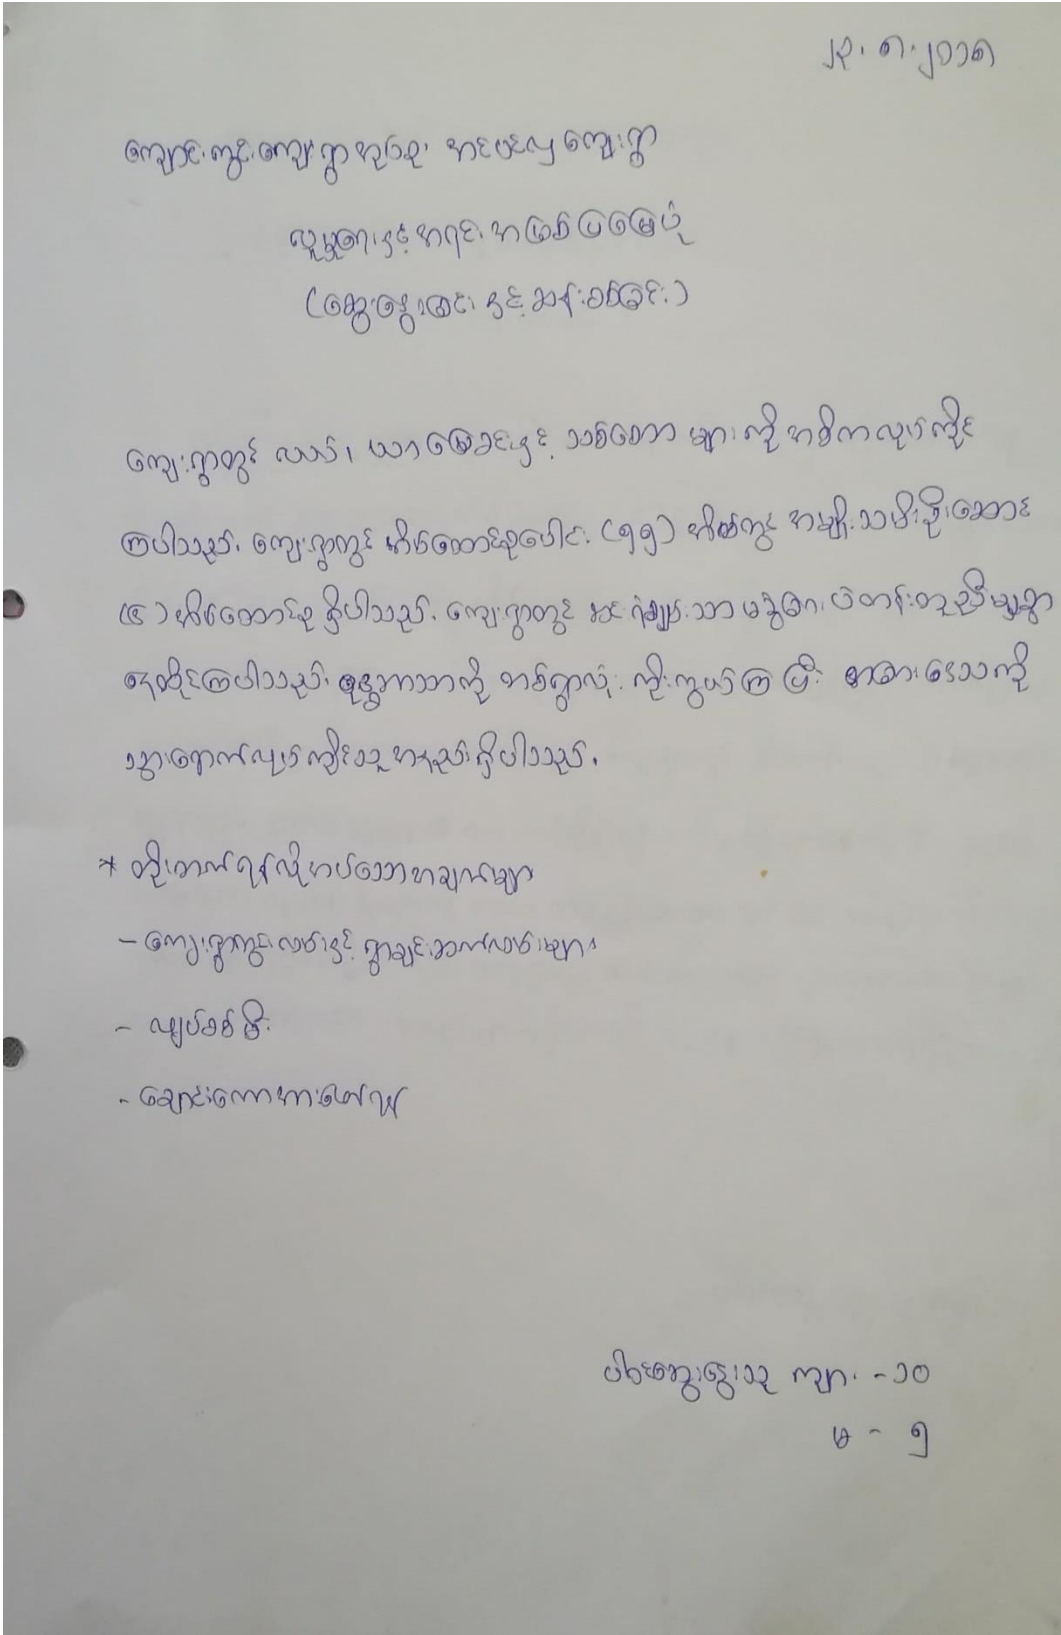 ၂၃. ၈. ၂၀၁၈
ကျောင်းကွင်းကျေးရွာအုပ်စု၊ အင်ပင်လှ ကျေးရွာ
လူမှုရေးနှင့် အရင်းအမြစ်ပြမြေပုံ
(ဆွေးနွေးခြင်း နှင့် ဆန်းစစ်ခြင်း)
ကျေးရွာတွင် လယ်၊ ယာမြေခင်းနှင့် သစ်တော များကို အဓိကလုပ်ကိုင်
ကြပါသည်။ ကျေးရွာတွင် အိမ်ထောင်စုပေါင်း (၅၅) အိမ်တွင် အမျိုးသမီးဦးဆောင်
(၄) အိမ်ထောင်စု ရှိပါသည်။ ကျေးရွာတွင် ဆင်းရဲချမ်းသာ မခွဲခြား ပဲတန်းတူညီမျှစွာ
နေထိုင်ကြပါသည်။ ဗုဒ္ဓဘာသာကို တစ်ရွာလုံး ကိုးကွယ်ကြ ပြီး အခြားဒေသကို
သွားရောက်လုပ်ကိုင်သူ အနည်းရှိပါသည်။
* တိုးတက်ရန်လိုအပ်သောအချက်များ
- ကျေးရွာတွင်းလမ်းနှင့် ရွာချင်းဆက်လမ်းများ၊
- လျှပ်စစ်မီး
- ချောင်းကော
ပါဝင်ဆွေးနွေးသူ ကျား - ၁၀
မ - ၅